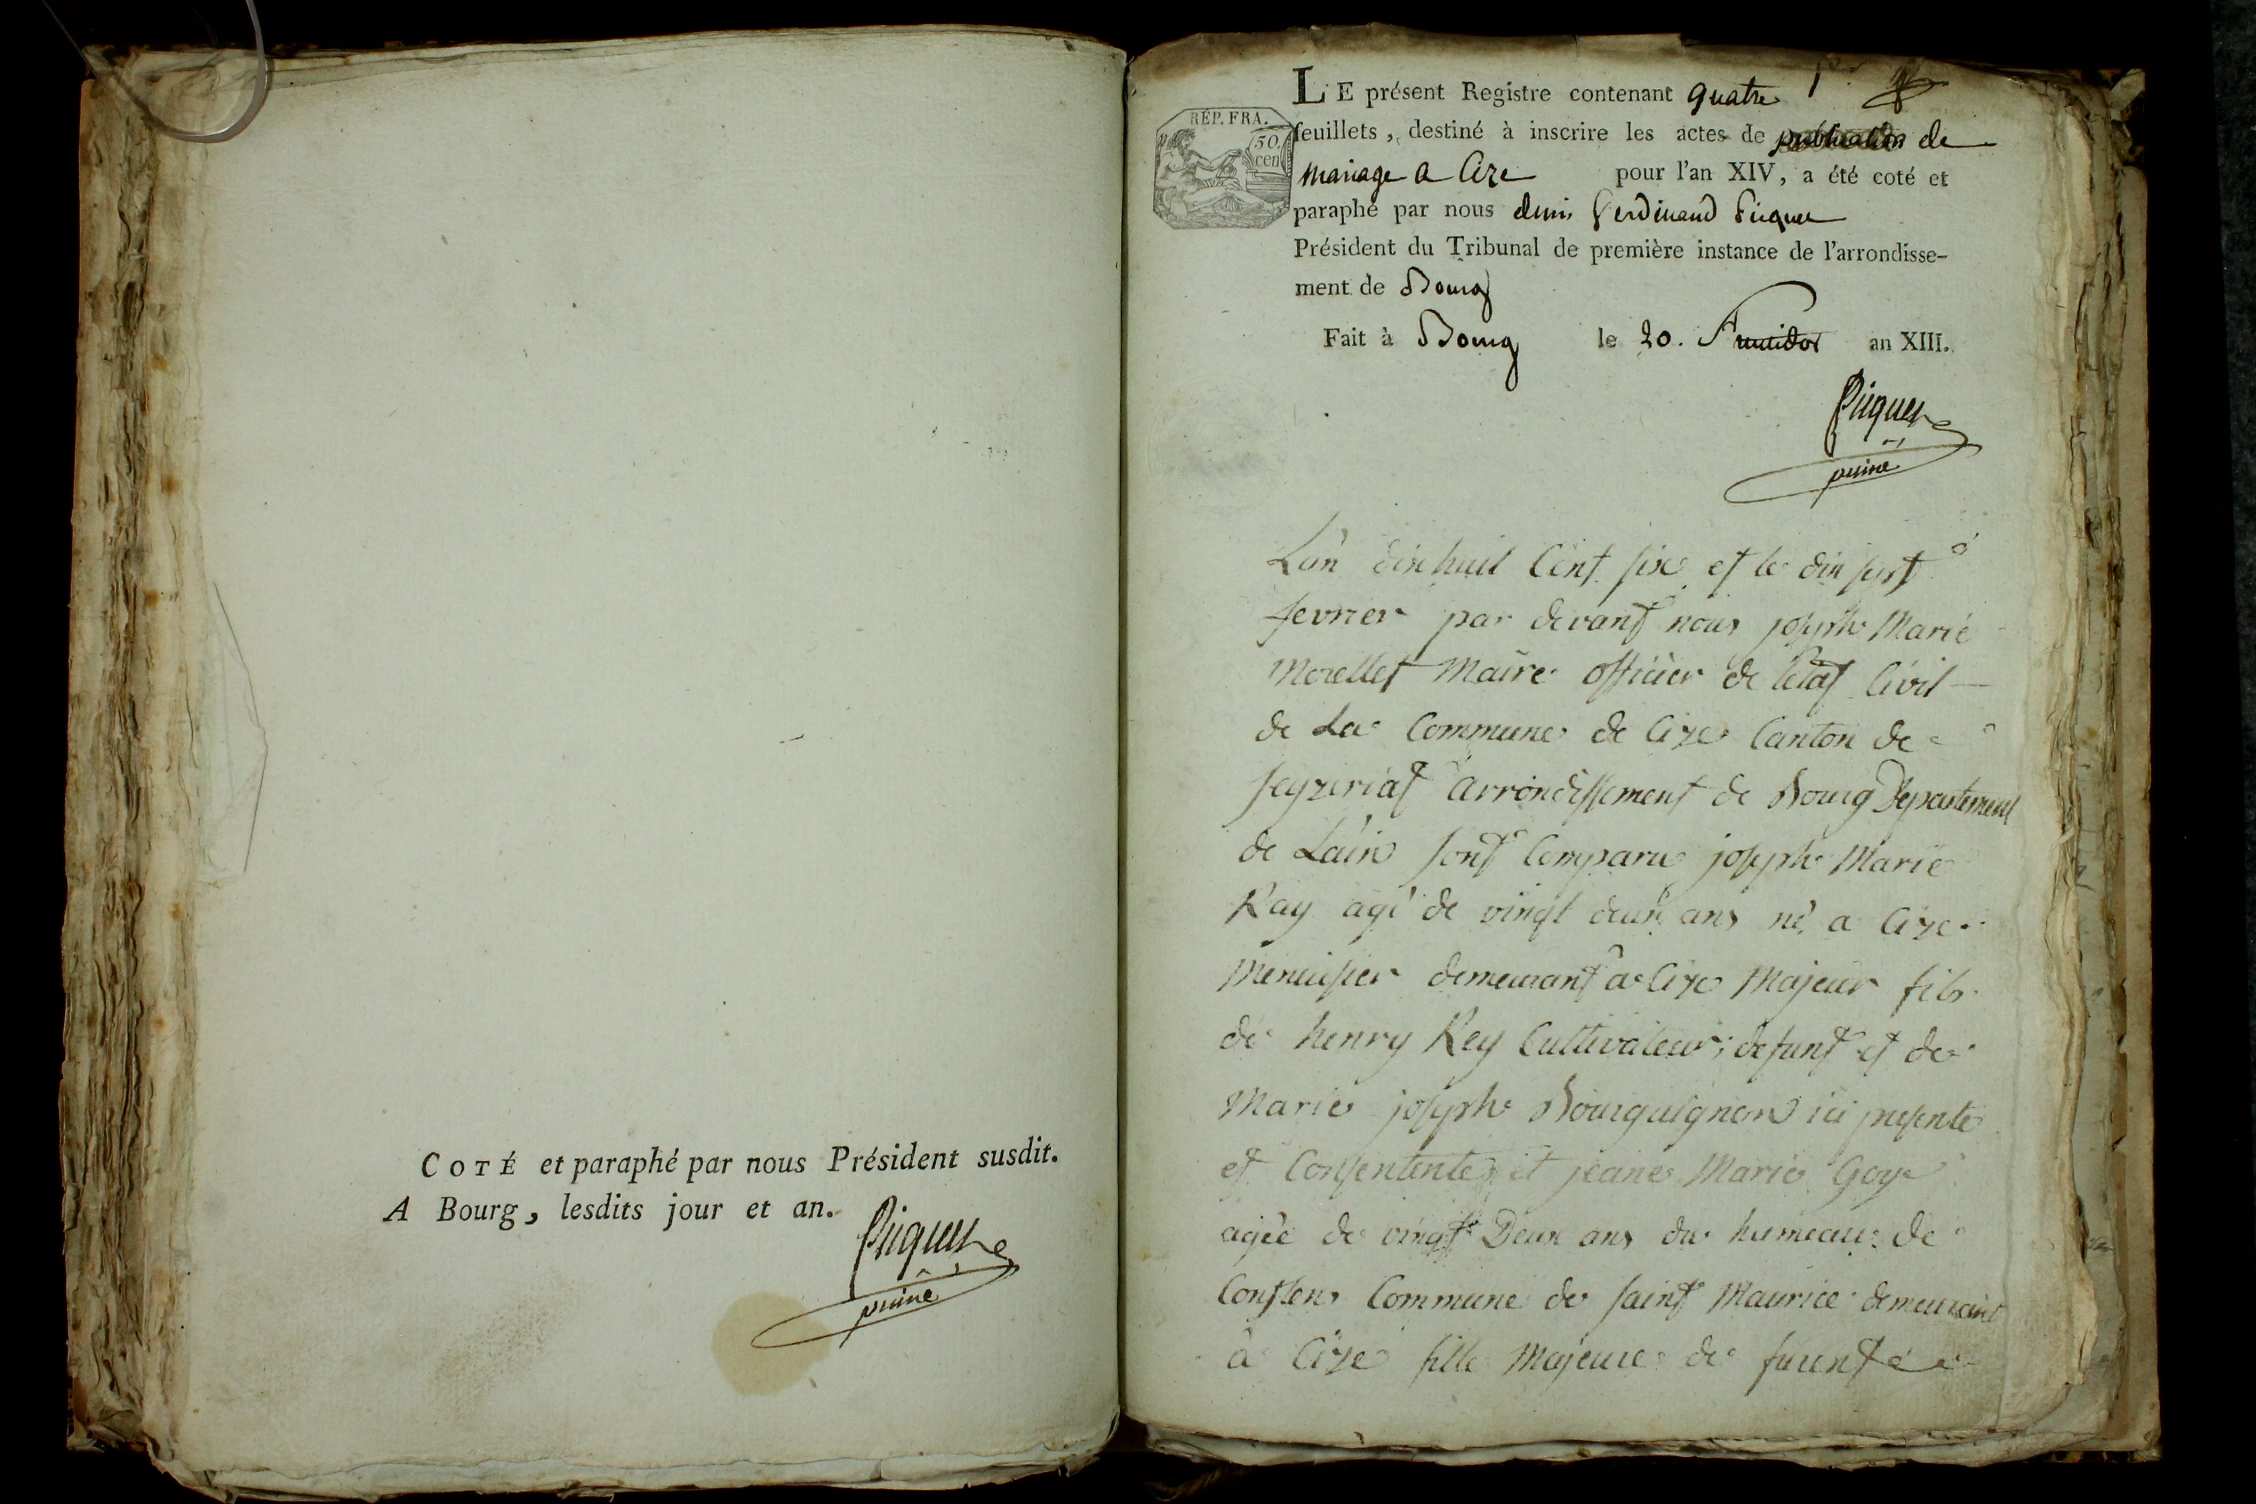 COTÉ et paraphé par nous Président susdit.
A Bourg, lesdits jour et an.
Picquet
puiné
1er
LE présent Registre contenant quatre
RÉP. FRA.
50
cen
feuillets, destiné à inscrire les actes de publication de
mariage a Cize pour l'an XIV, a été coté et
paraphé par nous denis ferdinand Picquet
Président du Tribunal de première instance de l'arrondisse-
ment de Bourg
Fait à Bourg le 20. Fructidor an XIII.
Picquet
puiné
L'an dix huit Cent six et le dix sept
fevrier par devant nous joseph Marie
Morellet Maire officier de l'état Civil
de La Commune de Cize Canton de
seyzeriat arrondissement de Bourg Departement
de L'ain sont Comparu joseph Marie
Ray agé de vingt deux ans né a Cize
Menuisier demeurant a Cize Majeur fils
de henry Rey Cultivateur defunt et de
Marie joseph Bourguignon ici presente
et Consentente et jeane Marie Goy
agée de vingt Deux ans du hameau de
Commune de saint Maurice demeurant
a Cize fille Majeure de